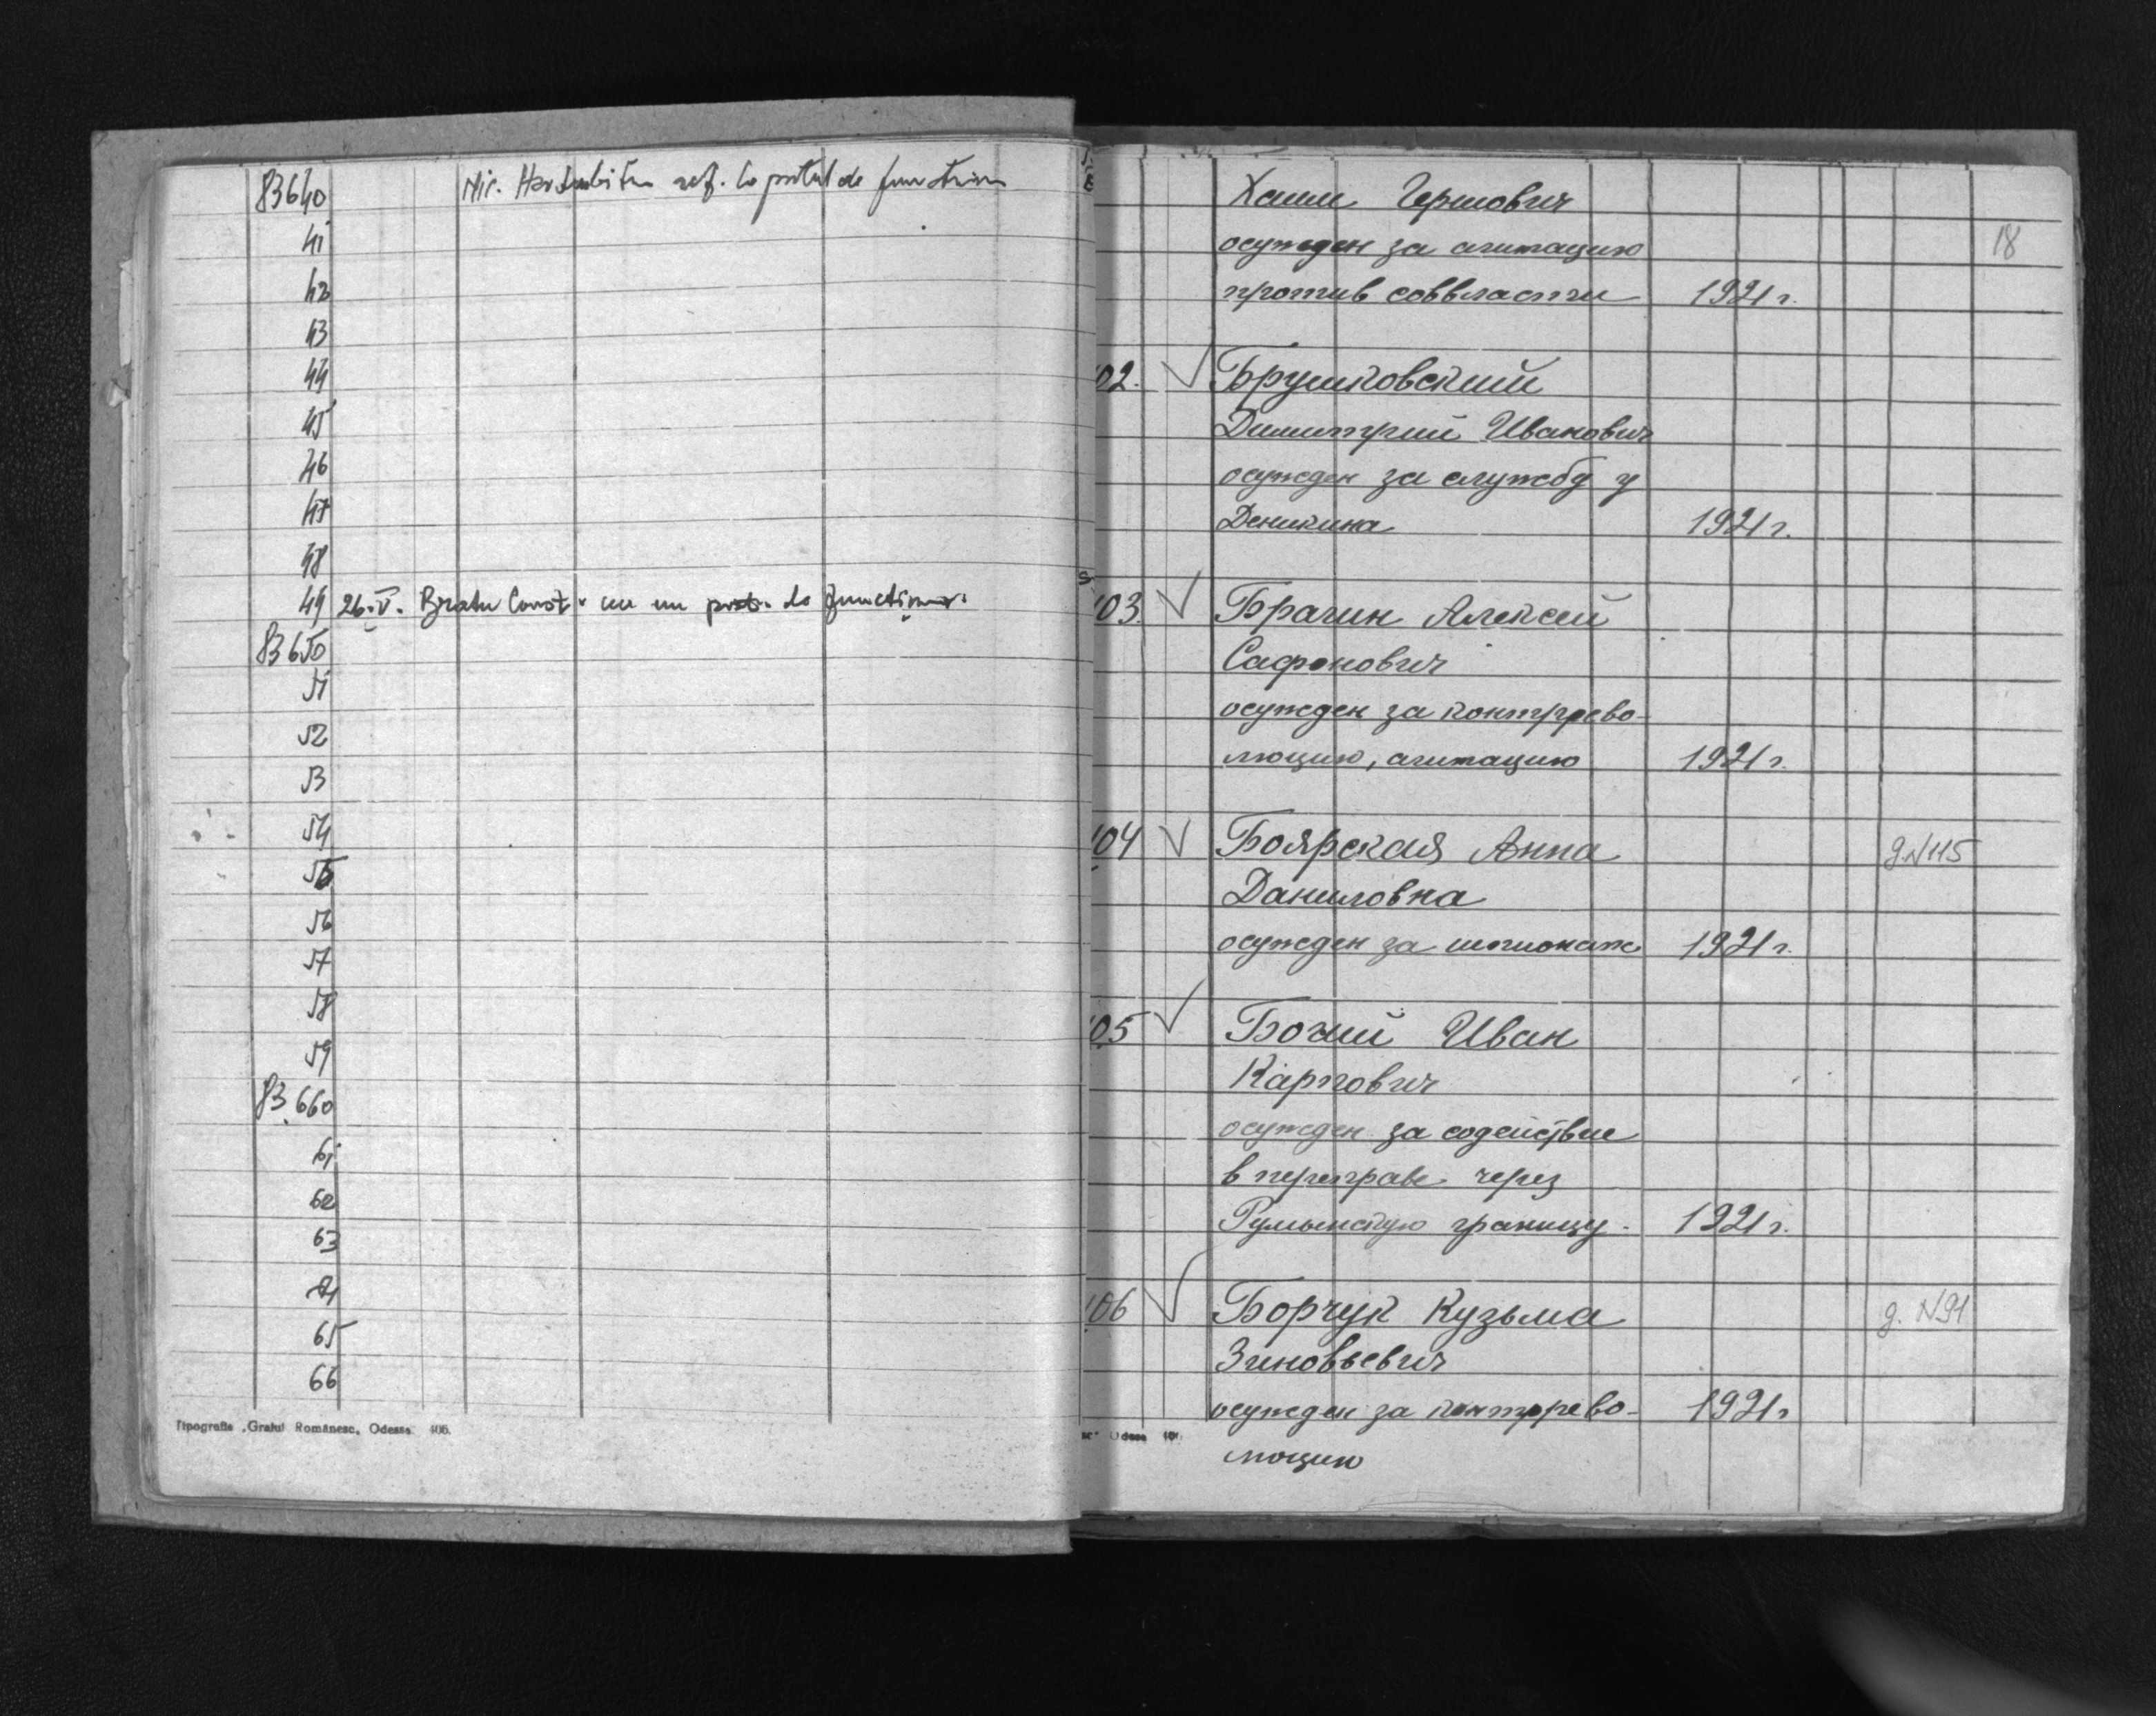 83640
41
42
43
44
45
46
47
48
49 26.V. Bratu Const. cu un post. de
83650
51
52
53
54
55
56
57
58
59
83.660
61
62
63
64
65
66
Tipografia „Graiul Românesc„ Odessa. 405.
18
Хаим Гершович
осужден за агитацию
против соввласти 1921 г.
102. Брушковский
Димитрий Иванович
осужден за службу у
Деникина 1921 г.
103. Брагин Алексей
Сафонович
осужден за контррево-
люцию, агитацию 1921 г.
104 Боярская Анна д.N115
Даниловна
осужден за шпионаж 1921 г.
105 Божий Иван
Карпович
осужден за содействие
в переправе через
Румынскую границу. 1921 г.
106 Борчук Кузьма д. N91
Зиновьевич
осужден за контррево- 1921 г
люцию